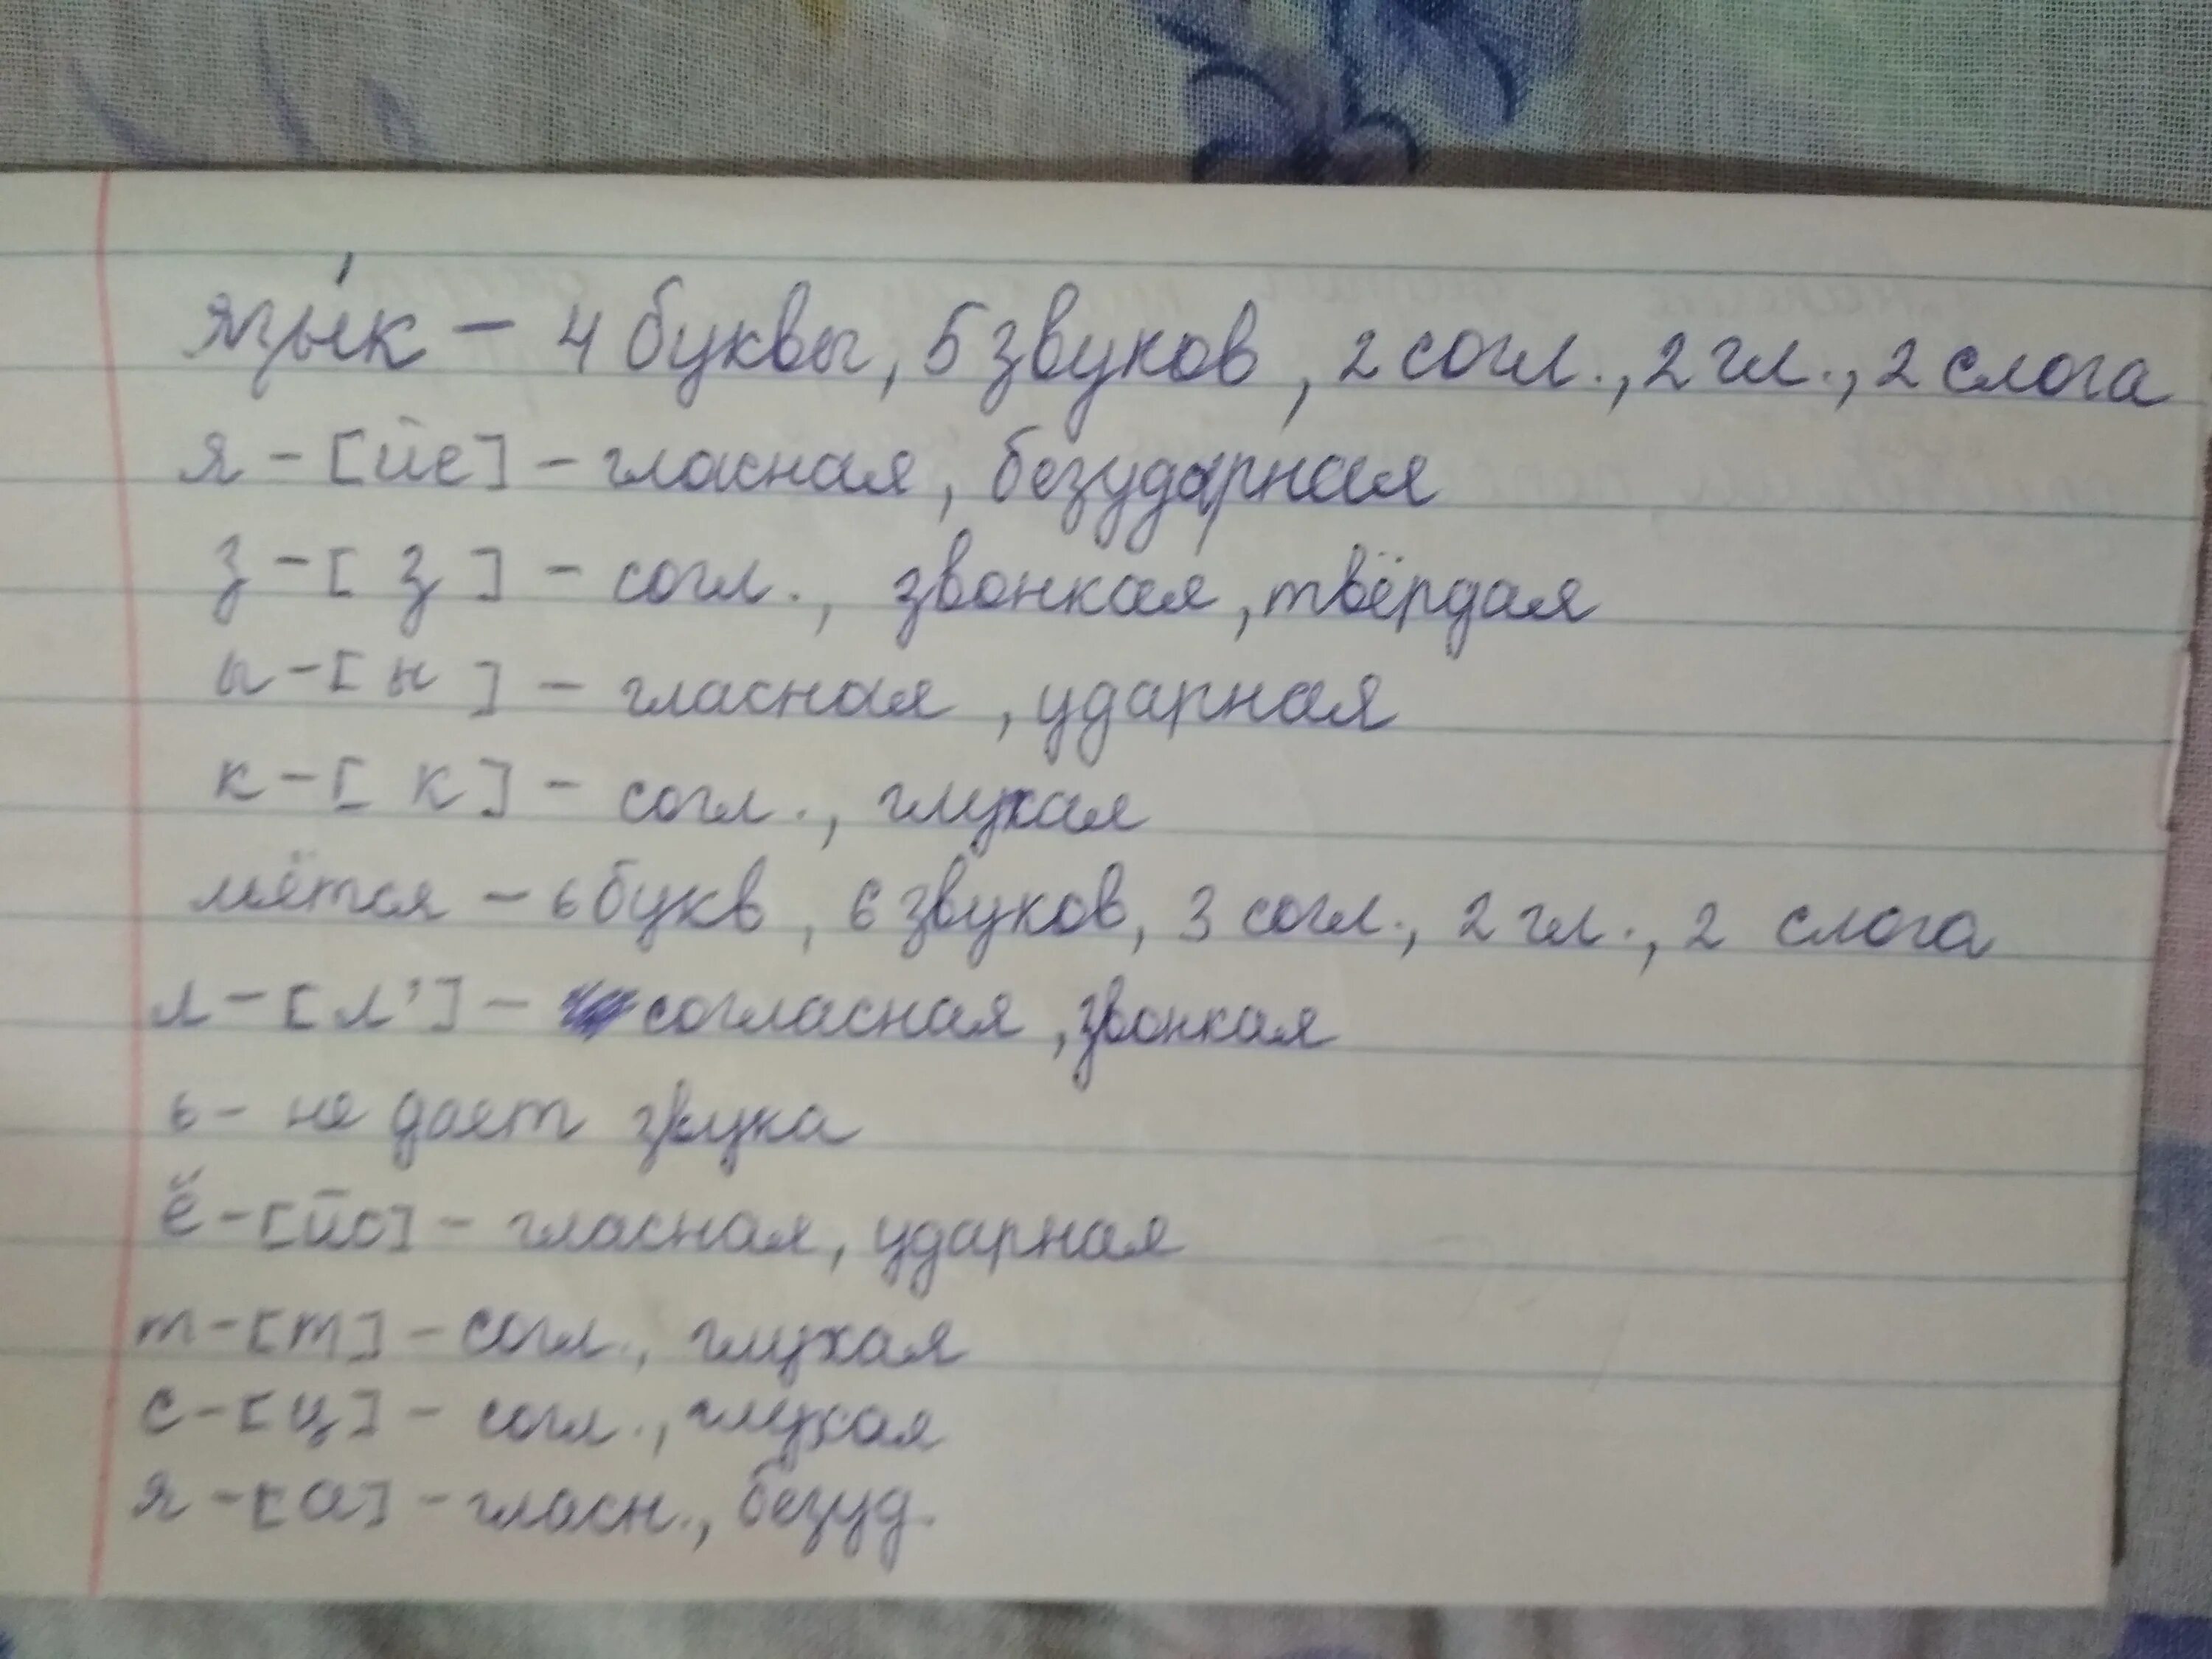 язы́к – 4 буквы, 5 звуков, 2 согл., 2 гл., 2 слога
я – [йе] – гласная, безударная
з – [з] – согл., звонкая, твёрдая
ы – [ы] – гласная, ударная
к – [к] – согл., глухая
льётся – 6 букв, 6 звуков, 3 согл., 2 гл., 2 слога
л – [л'] – согласная, звонкая
ь – не дает звука
ё – [йо] – гласная, ударная
т – [т] – согл., глухая
с – [ц] – согл., глухая
я – [а] – гласн., безуд.